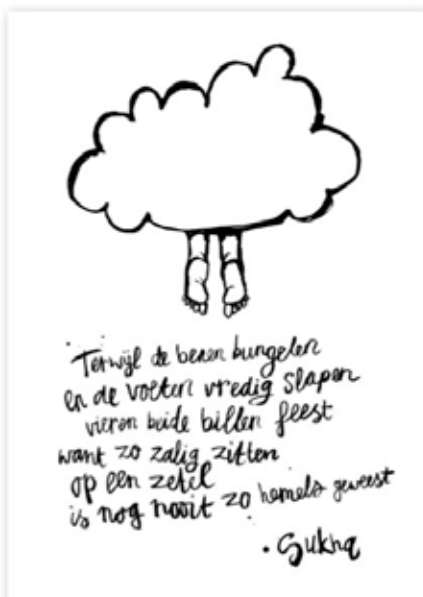 Terwijl de benen bungelen
en de voeten vredig slapen
vieren beide billen feest
want zo zalig zitten
op een zetel
is nog nooit zo hemels geweest
• Sukha